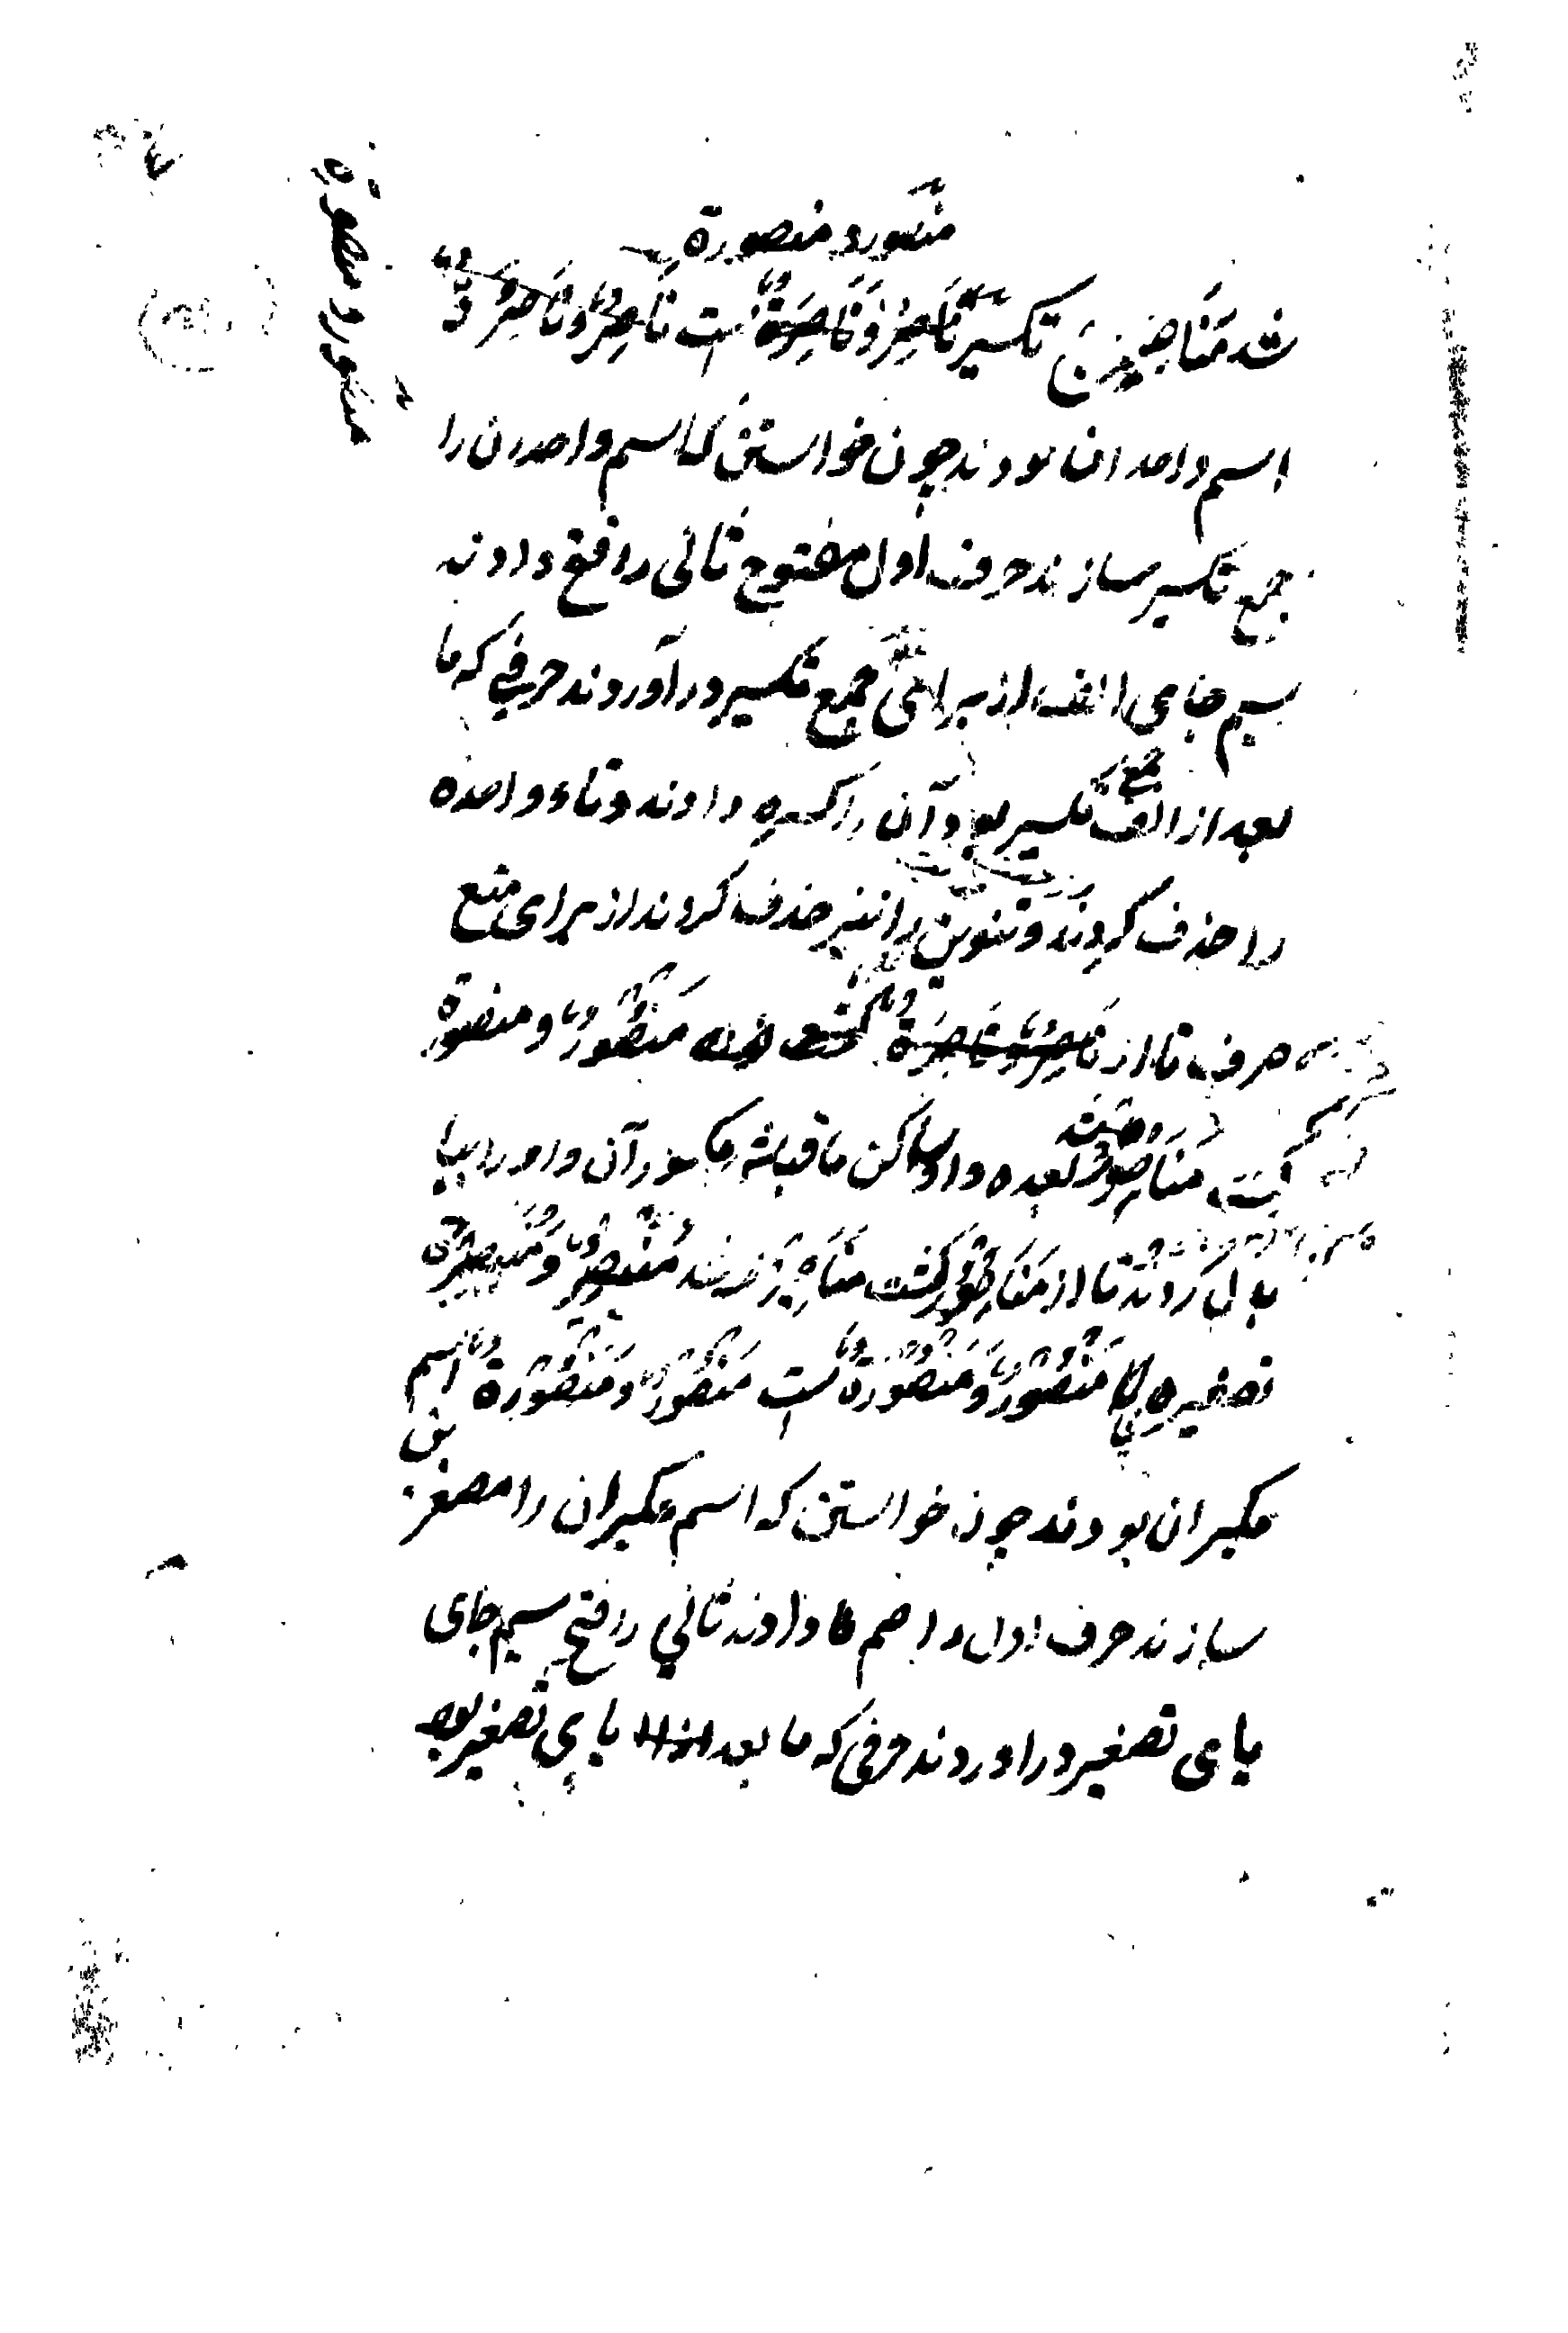 منصور و منصورة
شد مَنَاصِيرُ تكسير نَاصِرٌ وَ نَاصِرَةٌ است نَاصِرٌ و نَاصِرَةٌ
اسم واحدان بودند چون خواستن كه اسم واحدان را
جمع تكسير سازند حرف اول مفتوح ثانی را فتح دادند
سیم جای الف از برای جمع تكسير درآوردند حرفی كه ما
بعد از الف جمع تكسير بود آن را كسره دادند و تاء واحده
را حذف كردند و تنوین را نیز حذف كردند از برای منع
صرف تا از نَاصِرٌ و نَاصِرَةٌ مَنصُورٌ و منصورة
گشت مَنَاصِوْرُ بعده واو ساكن ماقبلش مكسور آن واو را بیا
بدل كردند تا از مَنَاصِوْرُ گشت مَنَاصِيرُ شد مُنَيصِرٌ وَ مُنَيصِرَةٌ
تصغیره مَنْصُوْرٌ وَ مَنْصُوْرَةٌ است مَنْصُوْرٌ و مَنْصُوْرَةٌ اسم
مكبران بودند چون خواستن كه اسم مكبران را مصغر
سازند حرف اول را ضم دادند ثانی را فتح سیم جای
یای تصغیر دراوردند حرفی كه ما بعد یای تصغیر بود
منصور و منصورة